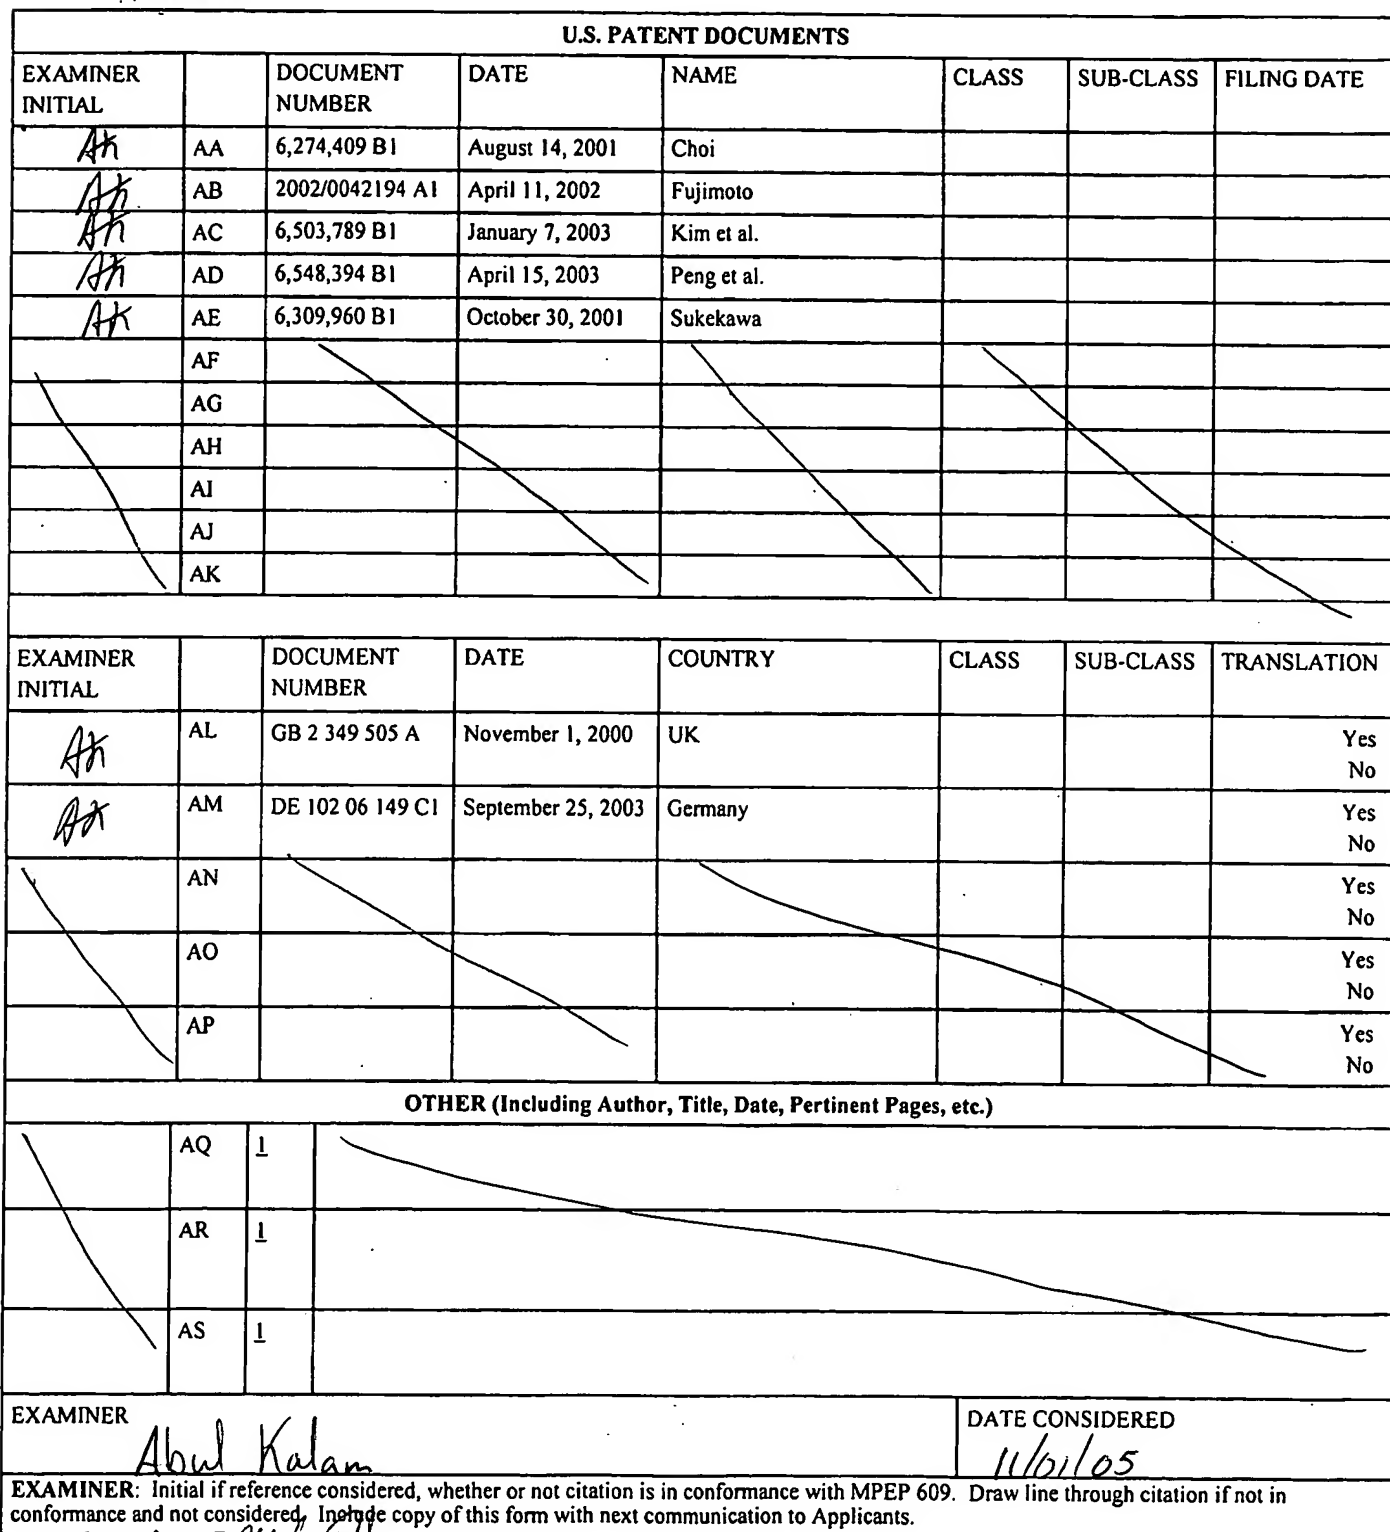 U.S. PATENT DOCUMENTS
EXAMINER INITIAL DOCUMENT NUMBER DATE NAME CLASS SUB-CLASS FILING DATE
AK AA 6,274,409 B1 August 14, 2001 Choi
AK AB 2002/0042194 A1 April 11, 2002 Fujimoto
AK AC 6,503,789 B1 January 7, 2003 Kim et al.
AK AD 6,548,394 B1 April 15, 2003 Peng et al.
AK AE 6,309,960 B1 October 30, 2001 Sukekawa
AF
AG
AH
AI
AJ
AK
EXAMINER INITIAL DOCUMENT NUMBER DATE COUNTRY CLASS SUB-CLASS TRANSLATION
AK AL GB 2 349 505 A November 1, 2000 UK Yes
No
AK AM DE 102 06 149 C1 September 25, 2003 Germany Yes
No
AN Yes
No
AO Yes
No
AP Yes
No
OTHER (Including Author, Title, Date, Pertinent Pages, etc.)
AQ 1
AR 1
AS 1
EXAMINER DATE CONSIDERED
Abul Kalam 11/01/05
EXAMINER: Initial if reference considered, whether or not citation is in conformance with MPEP 609. Draw line through citation if not in
conformance and not considered. Include copy of this form with next communication to Applicants.